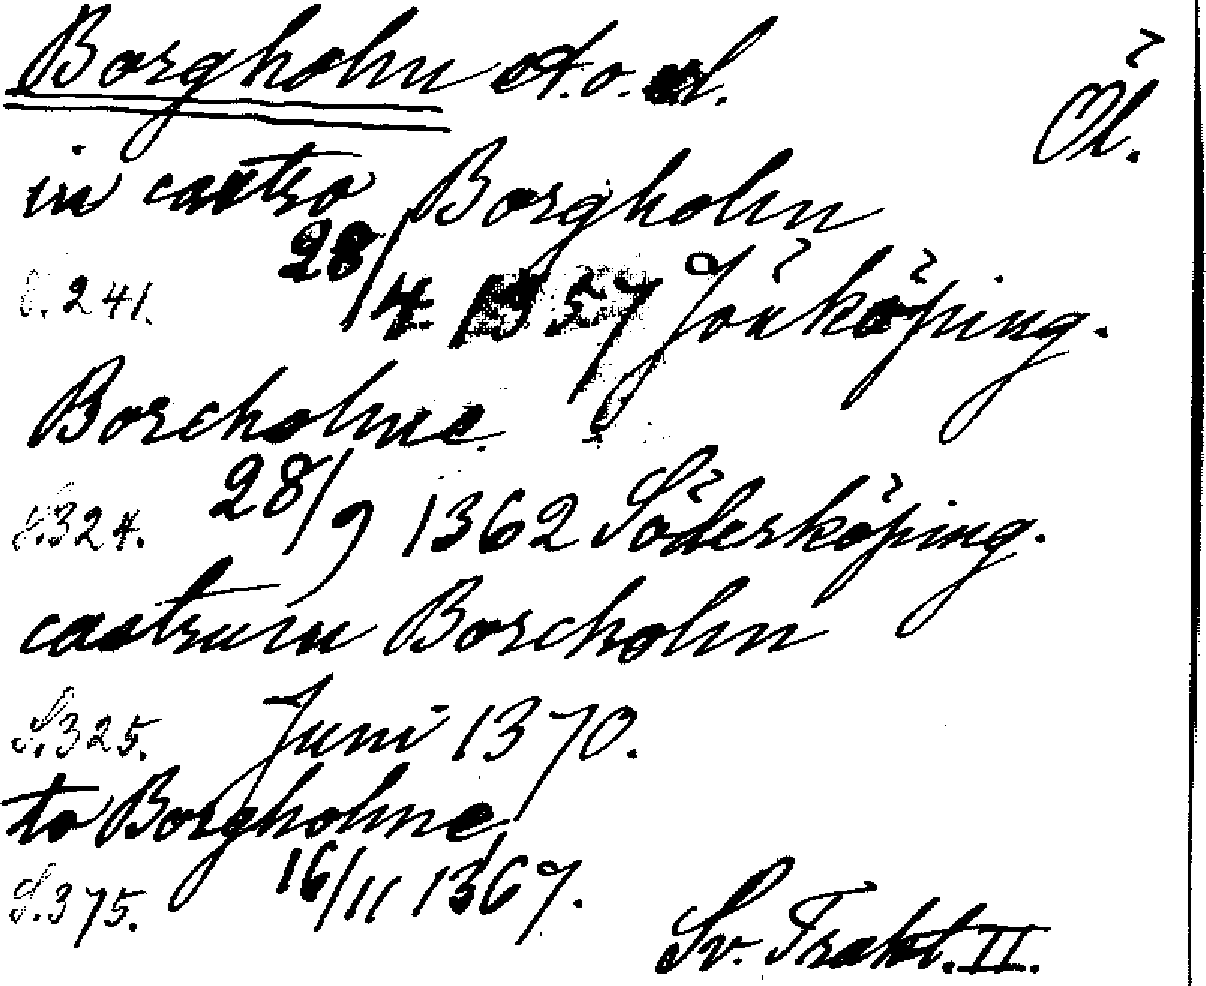 Borgholm st. o. sl. Öl.
in castro Borgholm
S. 241. 28/4 1357 Jönköping.
Borcholme
S. 324. 28/9 1362 Söderköping.
castrum Borcholm
S. 325. Juni 1370.
to Borgholme
S. 375. 16/11 1367.
Sv. Trakt. II.